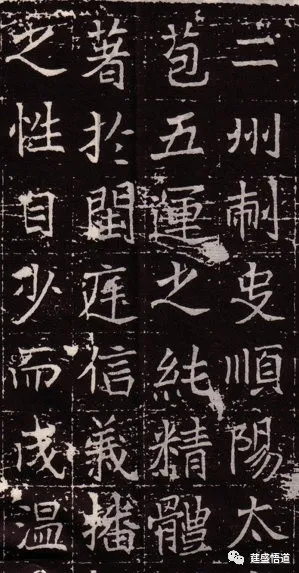 二州刺史順陽太
苞五運之純精體
著於閨庭信義播
之性自少而成溫
莛盛悟道